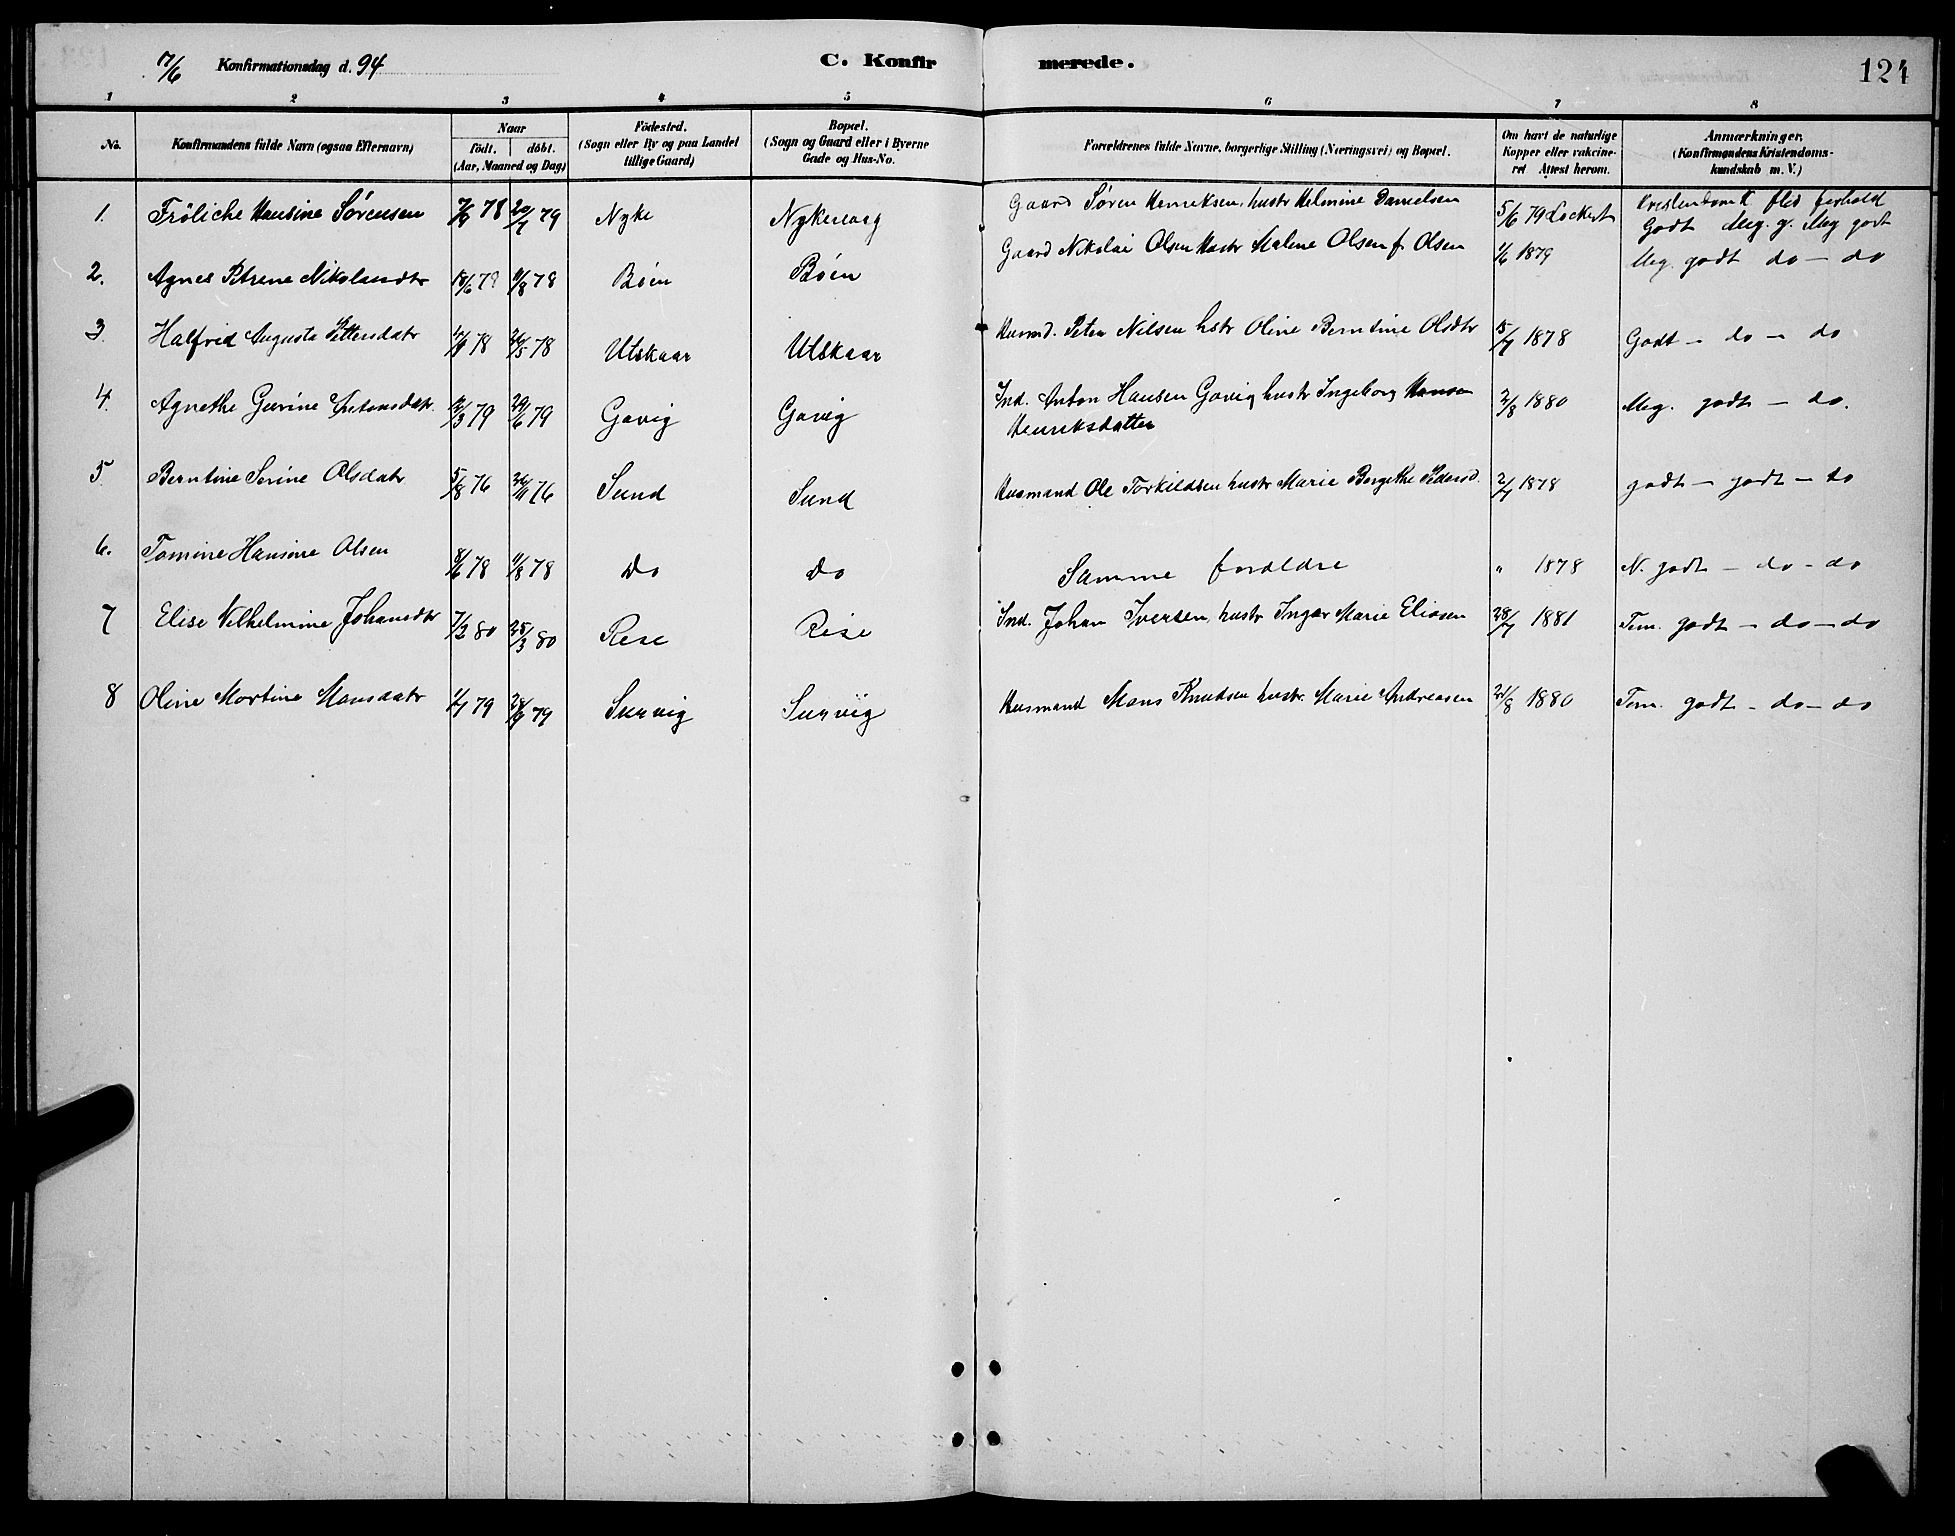 17/6 Konfirmationsdag d. 94
C. Konfirmerede.
121
1 2 3 4 5 6 7 8
No.
Konfirmandens fulde Navn (ogsaa Efternavn)
Naar
födt. döbt.
(Aar, Maaned og Dag)
Födested.
(Sogn eller By og paa Landet
tillige Gaard)
Bopæl.
(Sogn og Gaard eller i Byerne
Gade og Hus-No.
Forældrenes fulde Navne, borgerlige Stilling (Næringsvei) og Bopæl.
Om havt de naturlige
Kopper eller vakcine-
ret Attest herom.
Anmærkninger.
(Konfirmandens Kristendoms-
kundskab m. V.)
Kristendomk flid forhold
1. Fröliche Hansine Sørensen 78 20/7 79 Nyke Nykevaag Gaard Søren Henriksen, hustr Helmine Danielsen 5/6 79 Lockert Godt Meg. g. Meg godt
2. Agnes Petrine Nikolaisdtr 18/6 78 11/8 78 Böen Böen Gaard Nikolai Olsen Hustr Malene Olsen f. Olsen 1/6 1879 Meg. godt do – do
3. Halfrid Augusta Pettersdatr 78 26/5 78 Utskaar Utskaar Husmd. Peter Nilsen hstr Oline Berntine Olsdtr 15/7 1878 Godt – do – do
4. Agnethe Gurine Antonsdatr. 12/3 79 29/6 79 Gavig Gavig Ind. Anton Hansen Gavig hustr Ingeborg Hansen
Henriksdatter 2/8 1880 Meg. godt – do.
5. Berntine Serine Olsdatr 5/8 76 26/11 76 Sund Sund Husmand Ole Torkildsen hustr Marie Bergethe Pedersd. 2/7 1878 godt – godt – do
6. Tomine Hansine Olsen 8/6 78 11/8 78 Do Do Samme foraldre " 1878 N. godt – do – do
7 Elise Vilhelmine Johansdtr 7/2 80 25/3 80 Rese Rise Ind. Johan Iversen, hustr Inger Marie Eliasen 28/7 1881 Tem. godt – do – do
8 Oline Martine Mansdatr 1/7 79 28/9 79 Survig Survig Husmand Mans Knudsen hustr. Marie Andreasen 21/8 1880 Tem. godt – do – do